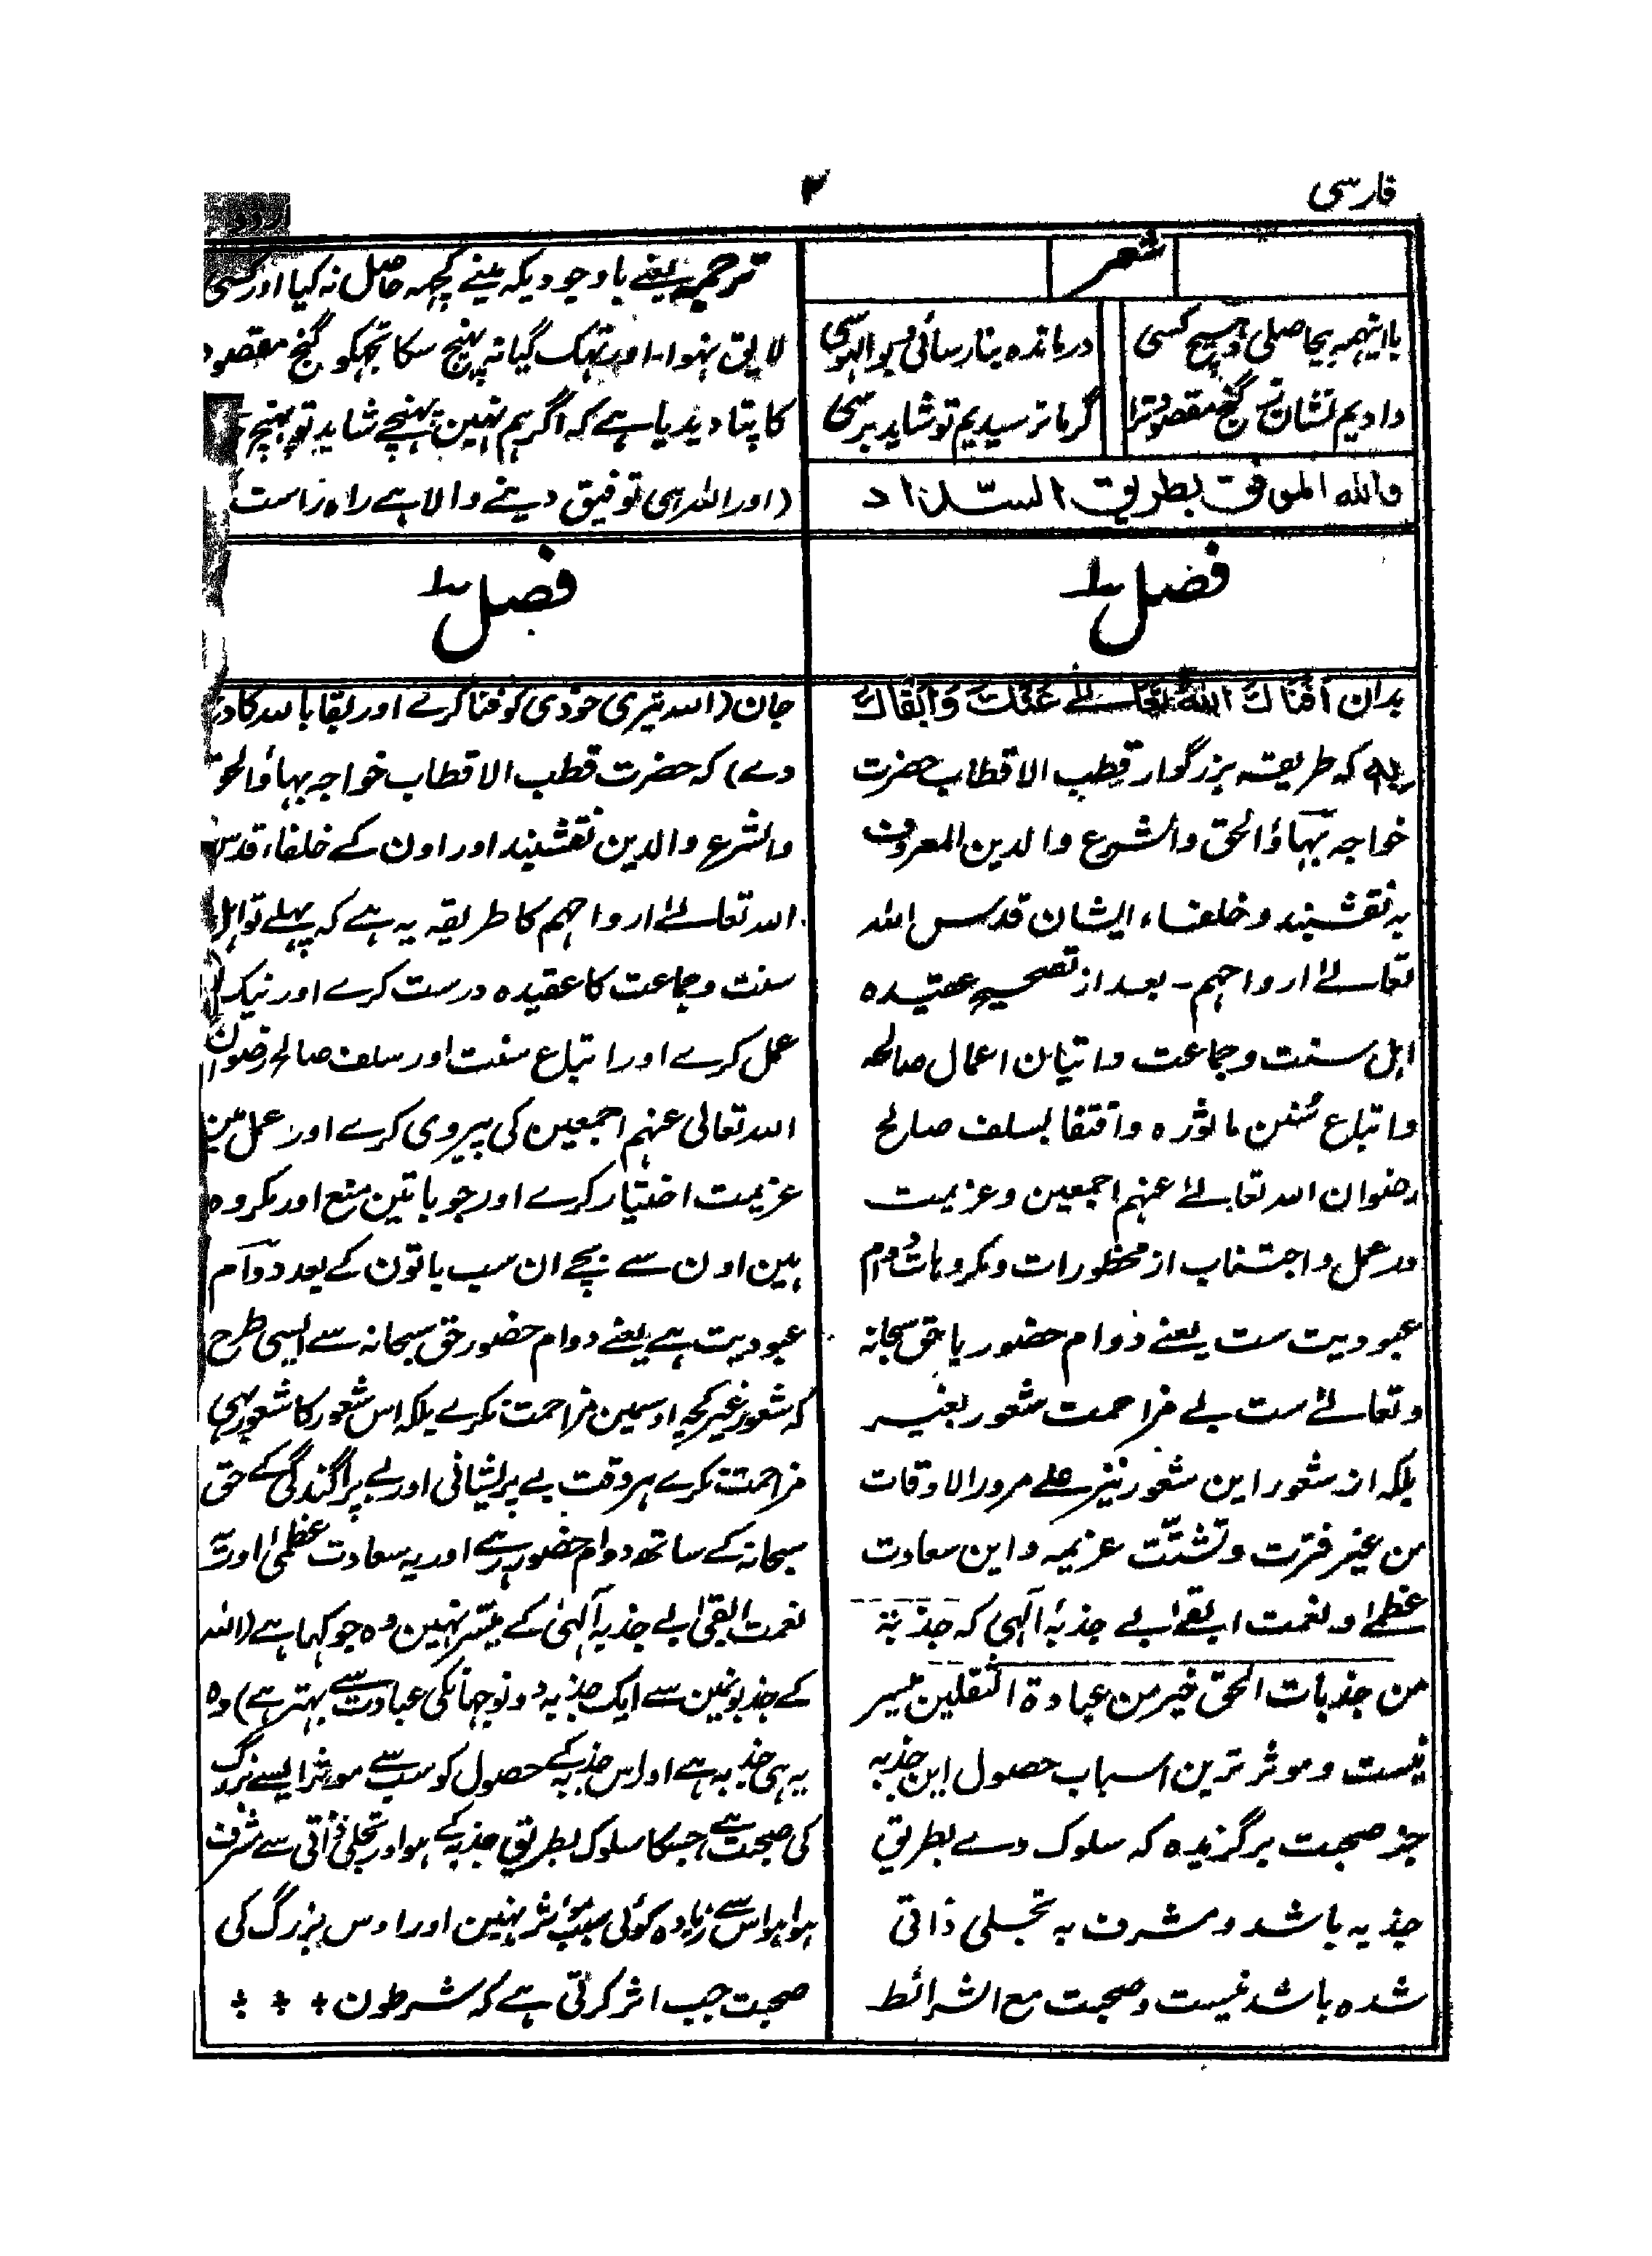 فارسی
۲
شعر
با اینہمہ بیحاصلی و ہیچ کسی
درماندہ بنارسائی و بوالہوسی
دادیم نشان ز گنج مقصود ترا
گر ما نرسیدیم تو شاید برسی
واللہ الموفق بطریق السداد
فصل ۱
بدان اَفْنَاكَ اللهُ تعالے عَنْكَ وَاَبْقَاكَ
بہ کہ طریقہ بزرگوار قطب الاقطاب حضرت
خواجہ بہاؤالحق والشرع والدین المعروف
بہ نقشبند و خلفاء ایشان قدس اللہ
تعالےٰ ارواحہم ۔ بعد از تصحیح عقیدہ
اہل سنت وجماعت و اتیان اعمال صالحہ
و اتباع سُنن ماثورہ و اقتفا بسلف صالح
رضوان اللہ تعالےٰ عنہم اجمعین و عزیمت
در عمل و اجتناب از محظورات و مکروہات دوام
عبودیت ست یعنے دوام حضور با حق سبحانہ
و تعالےٰ ست بے مزاحمت شعور بغیر
بلکہ از شعور این شعور نیز علے مرور الاوقات
من غیر فترت و تشتّت عزیمہ و این سعادت
عظمےٰ و نعمت ابقےٰ بے جذبۂ الٰہی کہ جذبۃ
من جذبات الحق خیر من عبادۃ الثقلین میسر
نیست و موثر ترین اسباب حصول این جذبہ
جز صحبت برگزیدہ کہ سلوک وے بطریق
جذبہ باشد و مشرف بہ تجلی ذاتی
شدہ باشد نیست و صحبت مع الشرائط
ترجمہ یعنے باوجودیکہ مینے کچہہ حاصل نہ کیا اور کسی
لایق نہوا ۔ اور تہک گیا نہ پہنچ سکا تجہکو گنج مقصود
کا پتا دیدیا ہے کہ اگر ہم نہین پہنچے شاید تو پہنچ
(اور اللہ ہی توفیق دینے والا ہے راہ راست
فصل ۱
جان (اللہ تیری خودی کو فنا کرے اور بقا باللہ کا
دے) کہ حضرت قطب الاقطاب خواجہ بہاؤالحق
والشرع والدین نقشبند اور اون کے خلفاء قدس
اللہ تعالےٰ ارواحہم کا طریقہ یہ ہے کہ پہلے تو اہل
سنت وجماعت کا عقیدہ درست کرے اور نیک
عمل کرے اور اتباع سنت اور سلف صالح رضوان
اللہ تعالیٰ عنہم اجمعین کی پیروی کرے اور عمل مین
عزیمت اختیار کرے اور جو باتین منع اور مکروہ
ہین اون سے بچے ان سب باتون کے بعد دوام
عبودیت ہے یعنے دوام حضور حق سبحانہ سے ایسی طرح
کہ شعور غیر کچہ اوسمین مزاحمت نکرے بلکہ اس شعور کا شعور بہی
مزاحمت نکرے ہر وقت بے پریشانی اور بے پراگندگی کے حق
سبحانہ کے ساتھ دوام حضور رہے اور یہ سعادت عظمیٰ اور
نعمت ابقیٰ بے جذبہ الٰہی کے میسر نہین وہ جو کہا ہے (اللہ
کے جذبونمین سے ایک جذبہ دونو جہانکی عبادت سے بہتر ہے) وہ
یہ ہی جذبہ ہے اور اس جذبہ کے حصول کو سب سے موثر ایسے بزرگ
کی صحبت ہے جسکا سلوک بطریق جذبہ کے ہو اور تجلی ذاتی سے مشرف
ہوا ہو اس سے زیادہ کوئی سبب مؤثر نہین اور اوس بزرگ کی
صحبت جب اثر کرتی ہے کہ شرطون